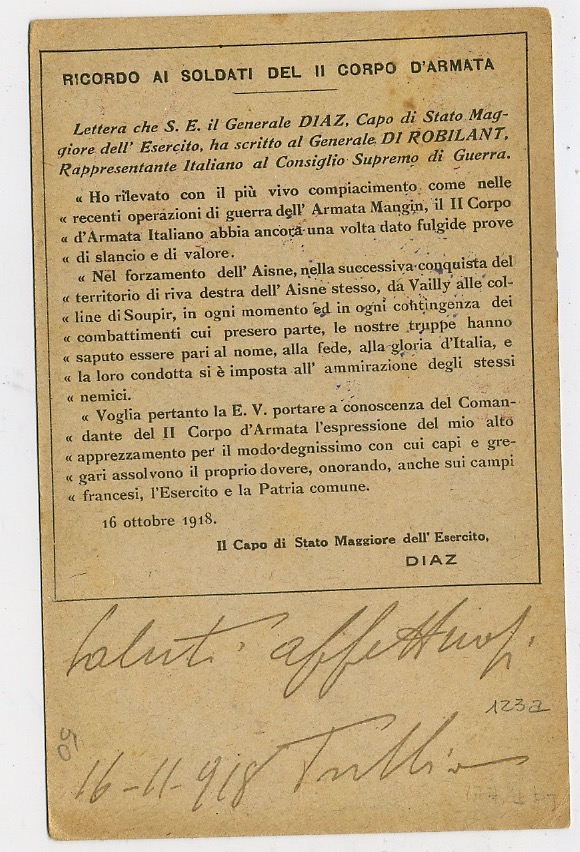 RICORDO AI SOLDATI DEL II CORPO D'ARMATA
Lettera che S. E. il Generale DIAZ, Capo di Stato Mag-
giore dell' Esercito, ha scritto al Generale DI ROBILANT,
Rappresentante Italiano al Consiglio Supremo di Guerra.
« Ho rilevato con il più vivo compiacimento come nelle
« recenti operazioni di guerra dell' Armata Mangin, il II Corpo
« d'Armata Italiano abbia ancora una volta dato fulgide prove
« di slancio e di valore.
« Nel forzamento dell' Aisne, nella successiva conquista del
« territorio di riva destra dell' Aisne stesso, da Vailly alle col-
« line di Soupir, in ogni momento ed in ogni contingenza dei
« combattimenti cui presero parte, le nostre truppe hanno
« saputo essere pari al nome, alla fede, alla gloria d'Italia, e
« la loro condotta si è imposta all' ammirazione degli stessi
« nemici.
« Voglia pertanto la E. V. portare a conoscenza del Coman-
« dante del II Corpo d'Armata l'espressione del mio alto
« apprezzamento per il modo degnissimo con cui capi e gre-
« gari assolvono il proprio dovere, onorando, anche sui campi
« francesi, l'Esercito e la Patria comune.
16 ottobre 1918.
Il Capo di Stato Maggiore dell' Esercito,
DIAZ
Saluti affettuosi
123a
16-11-918 Tullio